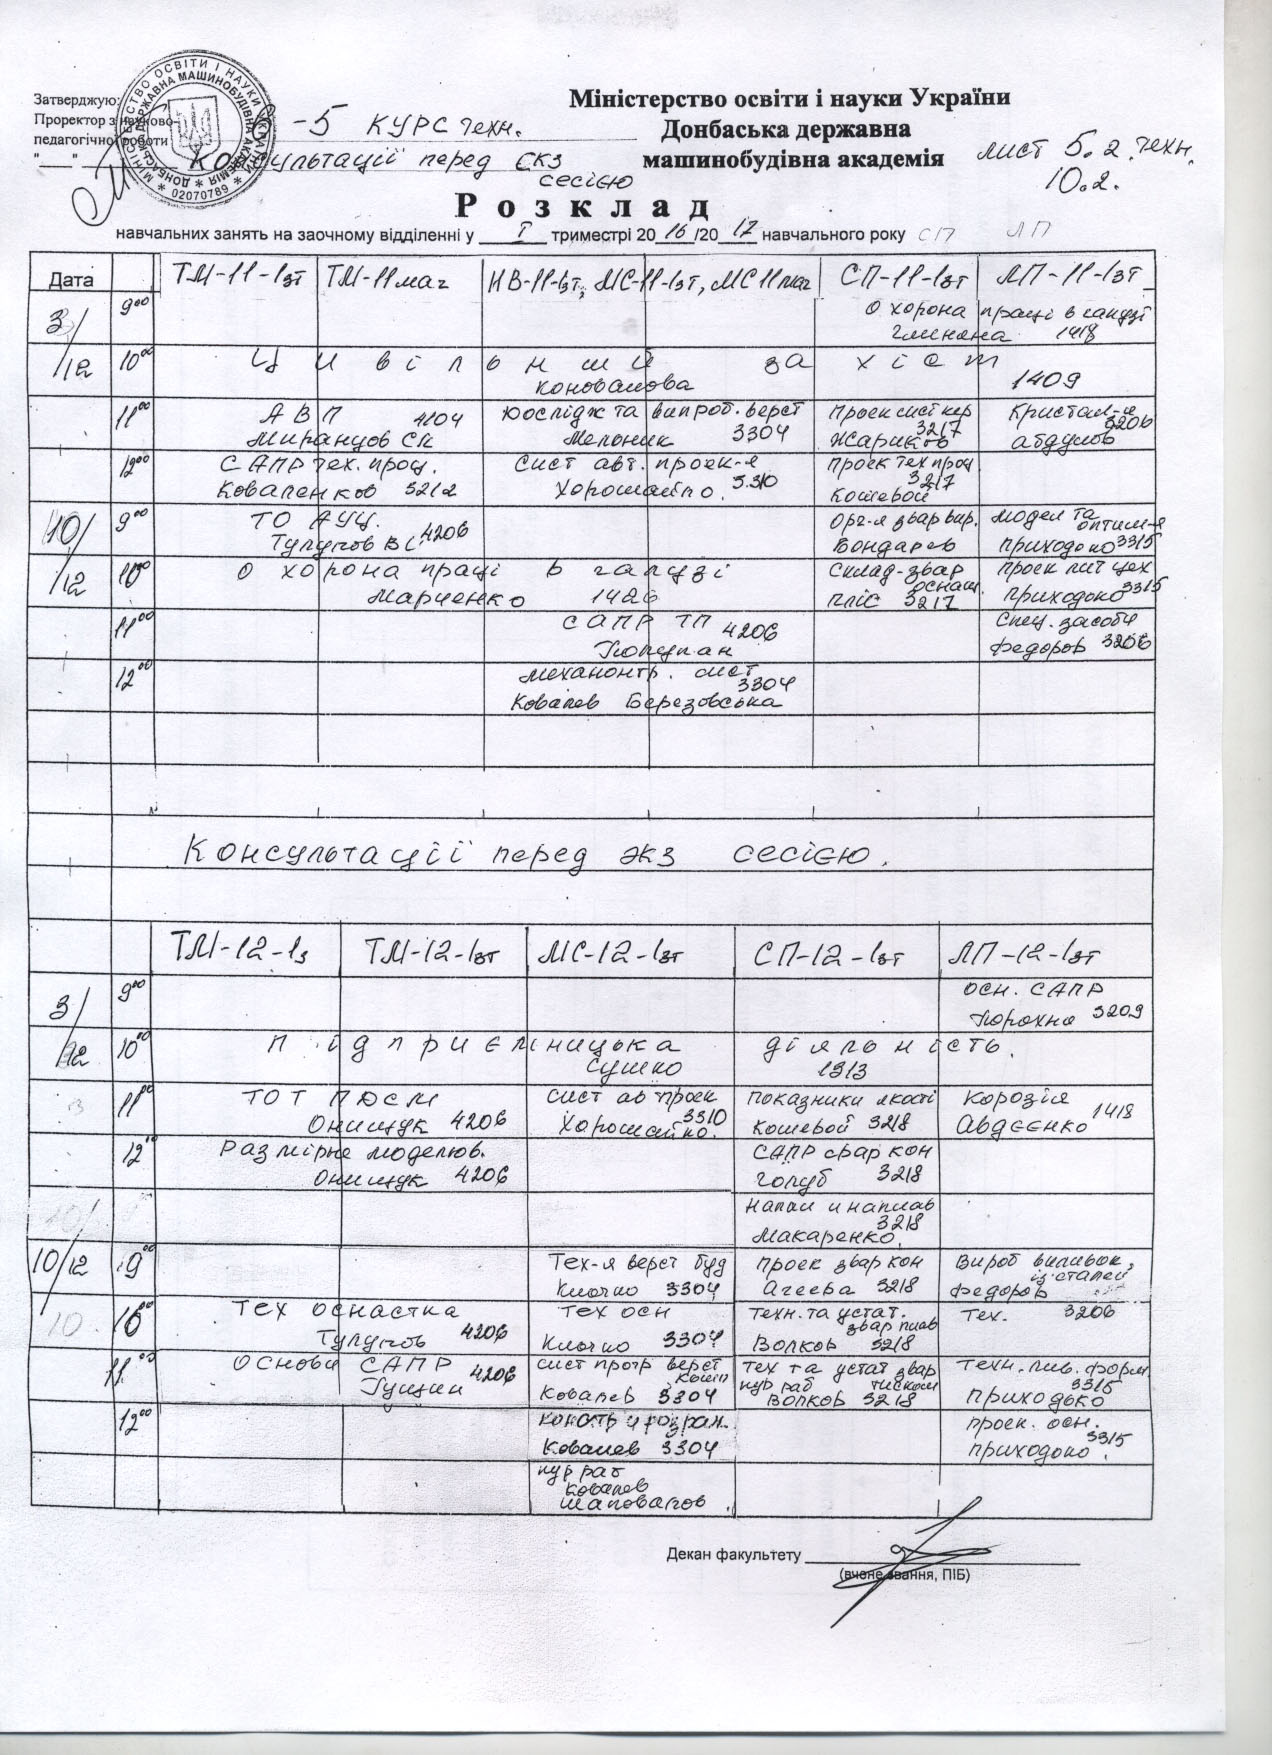 Затверджую:
Проректор з науково-
педагогічної роботи
"____" 
-5 КУРС техн.
Консультації перед
сесією
МІНІСТЕРСТВО ОСВІТИ І НАУКИ УКРАЇНИ
ДОНБАСЬКА ДЕРЖАВНА МАШИНОБУДІВНА АКАДЕМІЯ
02070789
Міністерство освіти і науки України
Донбаська державна
машинобудівна академія
лист 5.2. техн.
10.2.
Розклад
навчальних занять на заочному відділенні у I триместрі 2016/2017 навчального року СП ЛП
Дата ТМ-11-1зт ТМ-11маг НВ-11-1зт, МС-11-1зт, МС11маг СП-11-1зт ЛП-11-1зт
3/12 9⁰⁰ Охорона праці в галузі
1418
10⁰⁰ Цивільний захист
Коновалова 1409
11⁰⁰ АВП 4104 Дослідж та випроб. верст Проек сист кер Кристал-я
Миранцов СЛ Мельник 3304 Жариков 3217 Абдулов 3206
12⁰⁰ САПР тех. проц. Сист авт. проек-я Проек тех проц
Коваленков 3212 Хорошайло. 3310 Кошевой 3217
10/12 9⁰⁰ ТО АУЦ. Орг-я звар вир. Модел та оптим-я
Тулупов ВІ. 4206 Бондарев Приходько 3315
10⁰⁰ Охорона праці в галузі Склад-звар оснащ. Проек лит цех
Марченко 1426 ПЛІС 3217 Приходько 3315
11⁰⁰ САПР ТП 4206 Спец. засоби
Федоров 3206
12⁰⁰ Механотр. сист
3304
Ковалев Березовська
Консультації перед экз сесією.
ТМ-12-1з ТМ-12-1зт МС-12-1зт СП-12-1зт ЛП-12-1зт
3/12 9⁰⁰ осн. САПР
Порохня 3209
10⁰⁰ Підприємницька діяльність.
Сушко 1313
11⁰⁰ ТОТ ПДСМ Сист ав проек Показники якості Корозія
Онищук 4206 Хорошайло. 3310 Кошевой 3218 Авдєєнко 1418
12⁰⁰ Размірне моделюв. САПР звар кон
Онищук 4206 Голуб 3218
Напил и наплав
3218
Макаренко.
10/12 9⁰⁰ Тех-я верст буд Проек звар кон Вироб виливок, із сталей
Клочко 3304 Агеева 3218 Федоров
10 10⁰⁰ Тех оснастка Тех осн Техн. та устат. звар плав Тех. 3206
Тулупов 4206 Клочко 3304 Волков 3218
11⁰⁰ Основи САПР Сист прогр верст компл Тех та устат звар тиском Техн. лив. форм.
Гущин 4206 Ковалев 3304 кур раб Волков 3218 Приходько 3315
12⁰⁰ Констр и розрах. проек. осн.
Ковалев 3304 Приходько. 3315
кур раб
Ковалев
Шаповалов.
Декан факультету
(вчене звання, ПІБ)